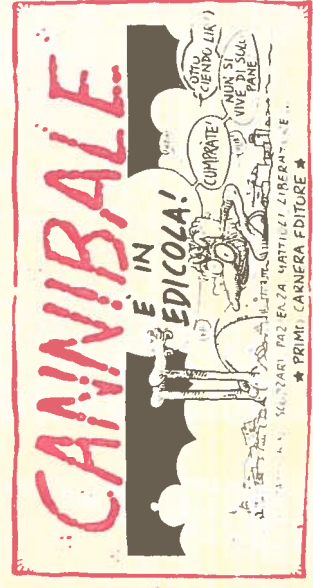 CANNIBALE
È IN
EDICOLA!
CUMPRATE!
OTTU
CIENDO LIR'!
NUN SI
VIVE DI SULU
PANE
SCOZZARI PAZIENZA MATTIOLI LIBERATORE
★ PRIMO CARNERA EDITORE ★